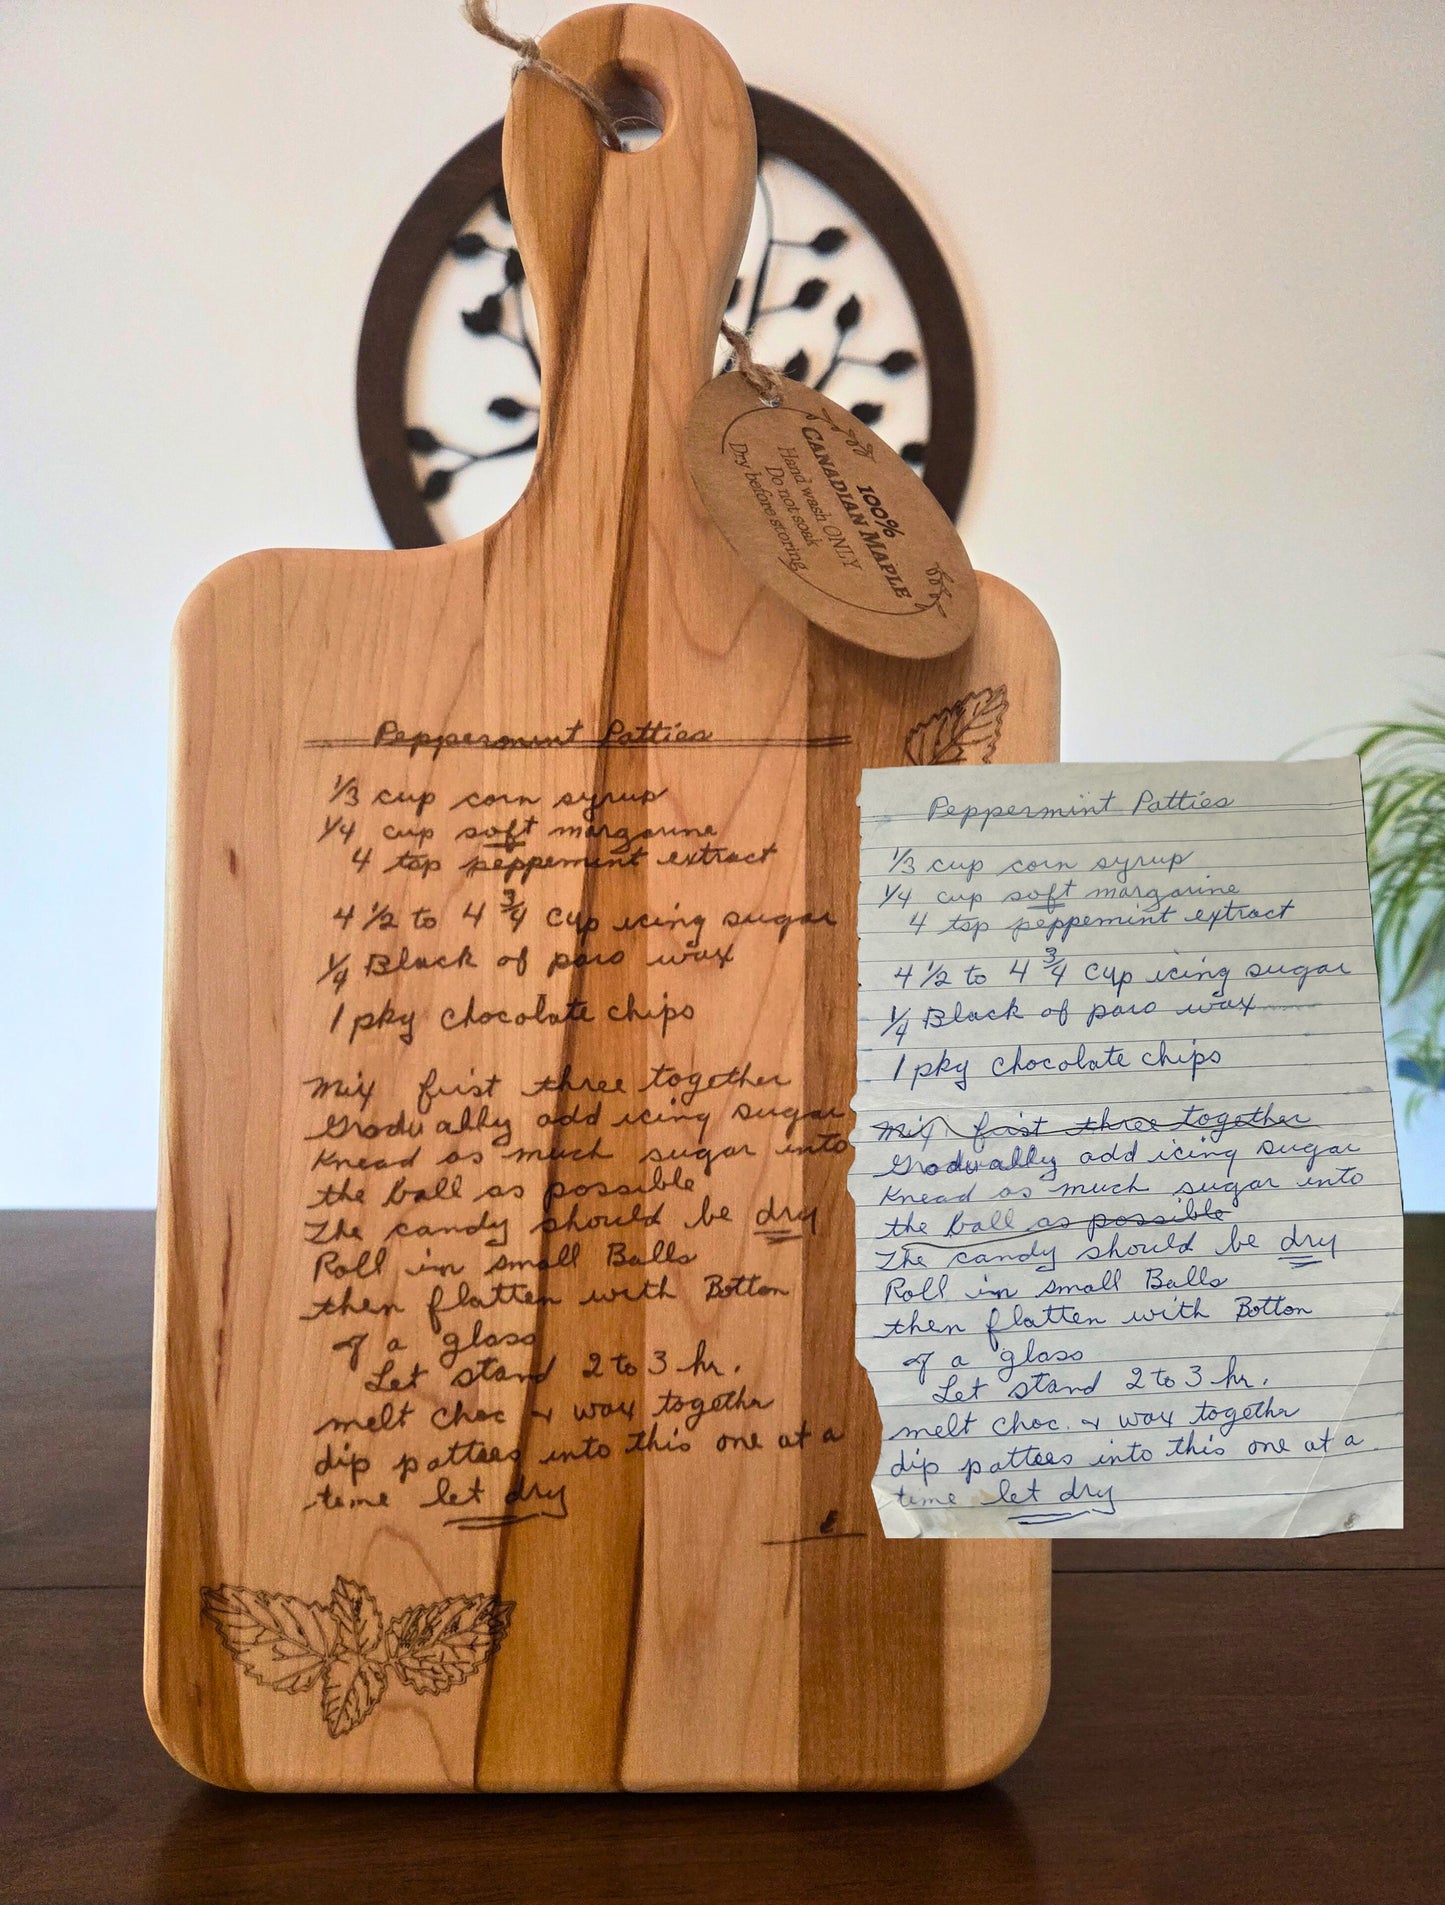 100%
CANADIAN MAPLE
Hand wash ONLY
Do not soak
Dry before storing
Peppermint Patties
1/3 cup corn syrup
1/4 cup soft margarine
4 tsp peppemint extract
4 1/2 to 4 3/4 cup icing sugar
1/4 Block of paro wax
1 pkg chocolate chips
Mix first three together
Gradually add icing sugar
Knead as much sugar into
the ball as possible
The candy should be dry
Roll in small Balls
then flatten with Botton
of a glass
Let stand 2 to 3 hr.
melt choc & wax together
dip pattees into this one at a
time let dry
Peppermint Patties
1/3 cup corn syrup
1/4 cup soft margarine
4 tsp peppemint extract
4 1/2 to 4 3/4 cup icing sugar
1/4 Block of paro wax
1 pkg chocolate chips
Mix first three together
Gradually add icing sugar
Knead as much sugar into
the ball as possible
The candy should be dry
Roll in small Balls
then flatten with Botton
of a glass
Let stand 2 to 3 hr.
melt choc. & wax together
dip pattees into this one at a
time let dry